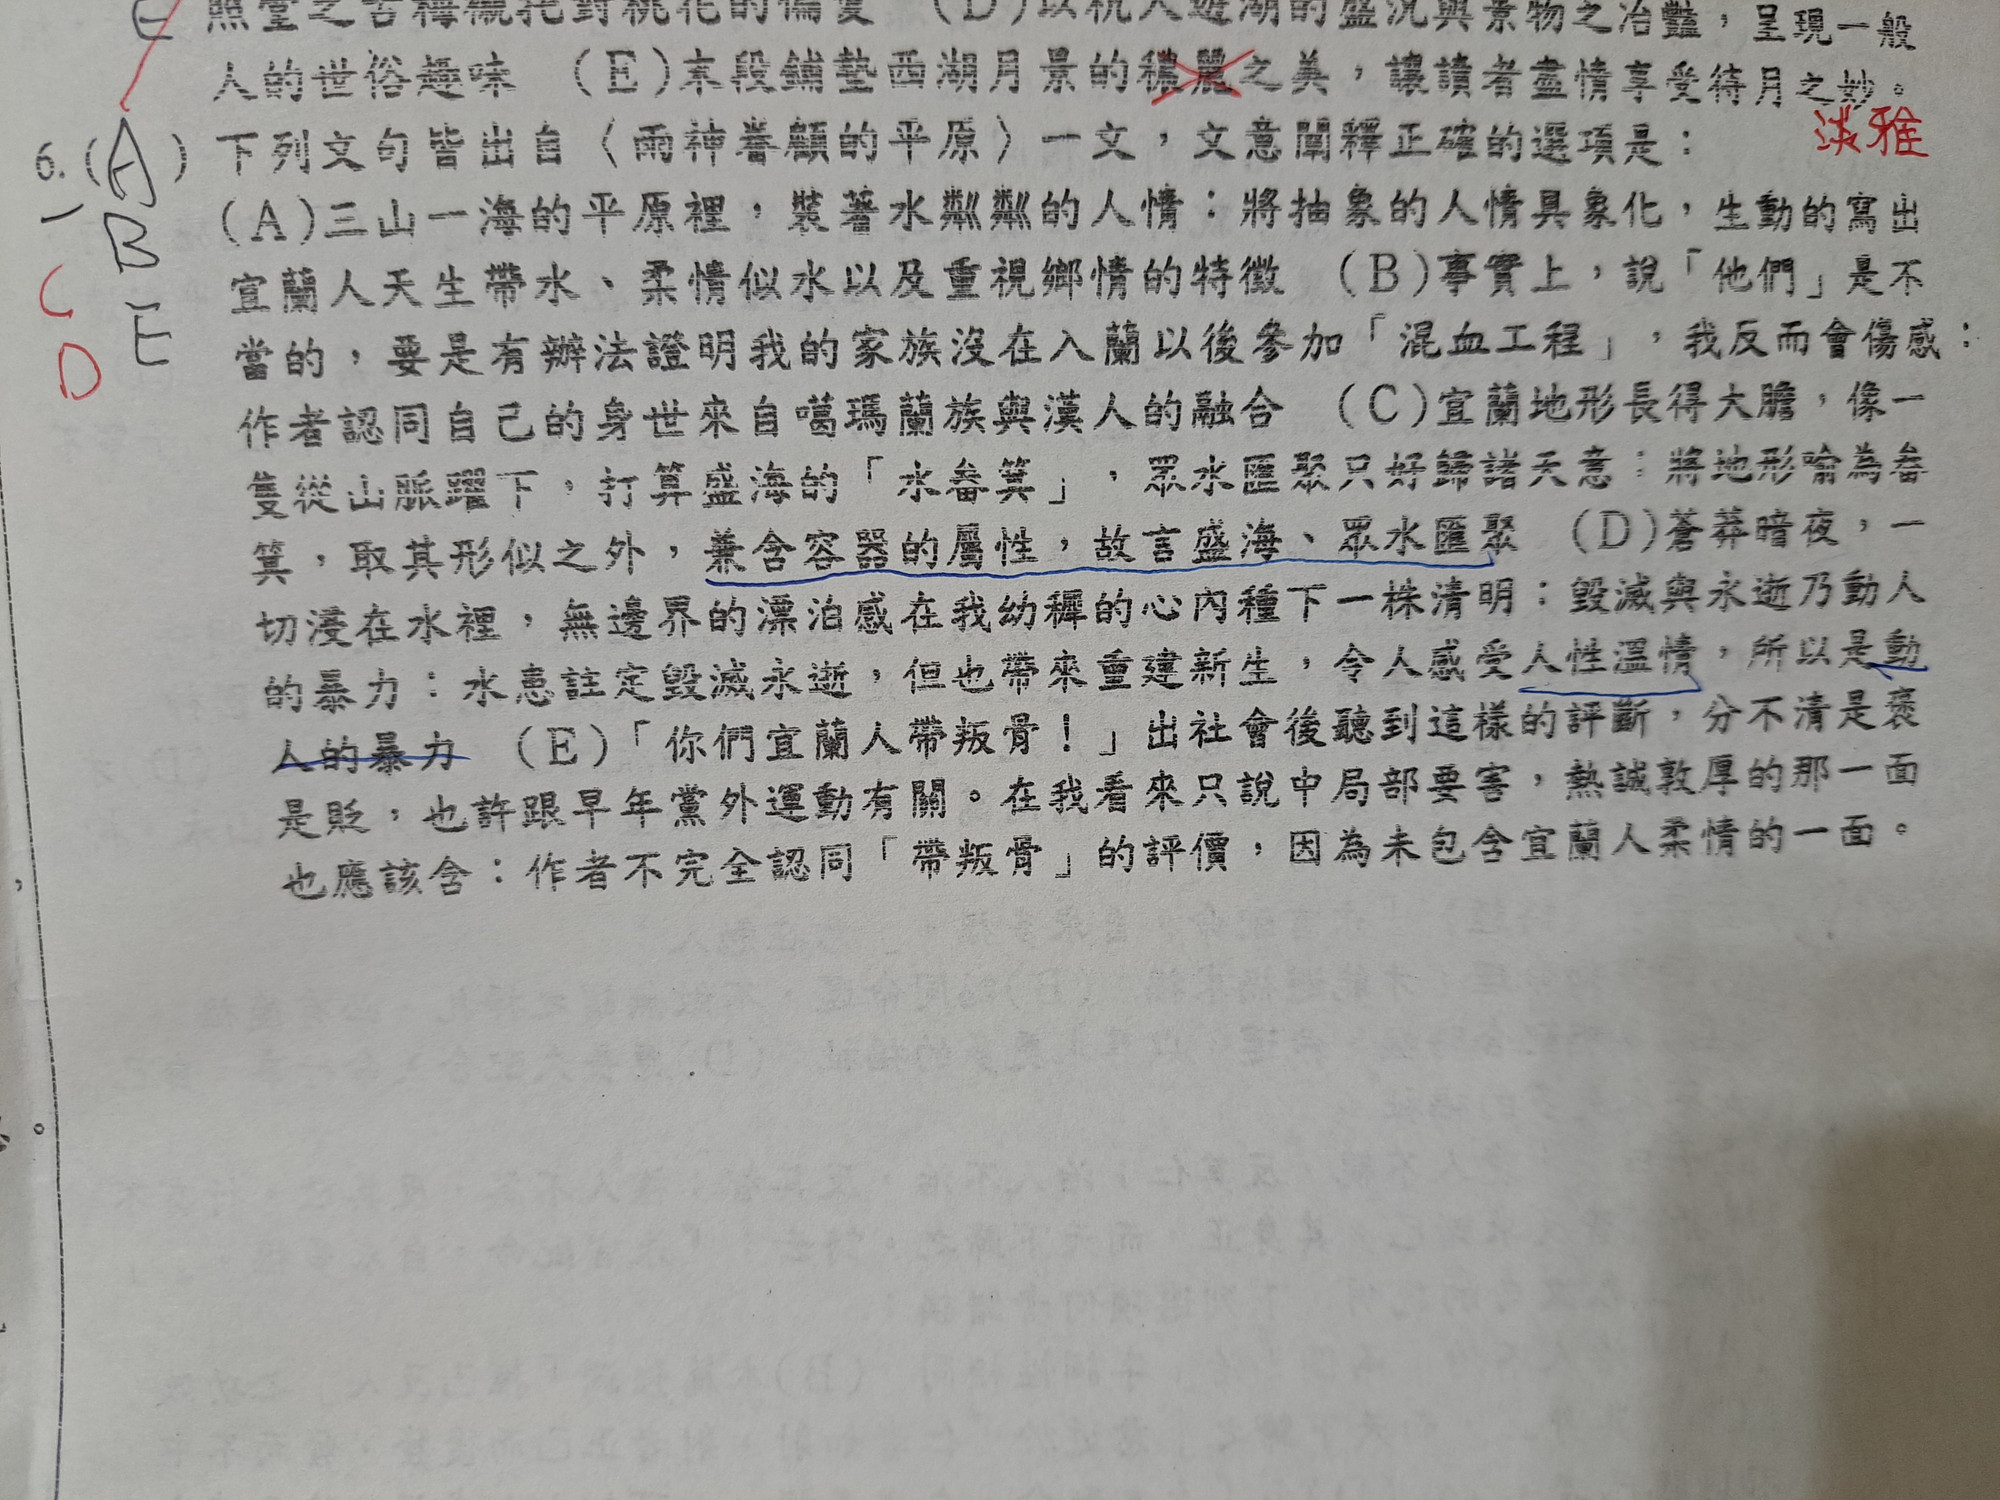 照堂之古梅襯托對桃花的偏愛 (D)以杭人遊湖的盛況與景物之冶豔，呈現一般
人的世俗趣味 (E)末段鋪墊西湖月景的穠麗之美，讓讀者盡情享受待月之妙。
淡雅
6.(A)下列文句皆出自〈雨神眷顧的平原〉一文，文意闡釋正確的選項是：
B
E
C
D
(A)三山一海的平原裡，裝著水粼粼的人情：將抽象的人情具象化，生動的寫出
宜蘭人天生帶水、柔情似水以及重視鄉情的特徵 (B)事實上，說「他們」是不
當的，要是有辦法證明我的家族沒在入蘭以後參加「混血工程」，我反而會傷感：
作者認同自己的身世來自噶瑪蘭族與漢人的融合 (C)宜蘭地形長得大膽，像一
隻從山脈躍下，打算盛海的「水畚箕」，眾水匯聚只好歸諸天意：將地形喻為畚
箕，取其形似之外，兼含容器的屬性，故言盛海、眾水匯聚 (D)蒼莽暗夜，一
切浸在水裡，無邊界的漂泊感在我幼穉的心內種下一株清明：毀滅與永逝乃動人
的暴力：水患註定毀滅永逝，但也帶來重建新生，令人感受人性溫情，所以是動
人的暴力 (E)「你們宜蘭人帶叛骨！」出社會後聽到這樣的評斷，分不清是褒
是貶，也許跟早年黨外運動有關。在我看來只說中局部要害，熱誠敦厚的那一面
也應該含：作者不完全認同「帶叛骨」的評價，因為未包含宜蘭人柔情的一面。